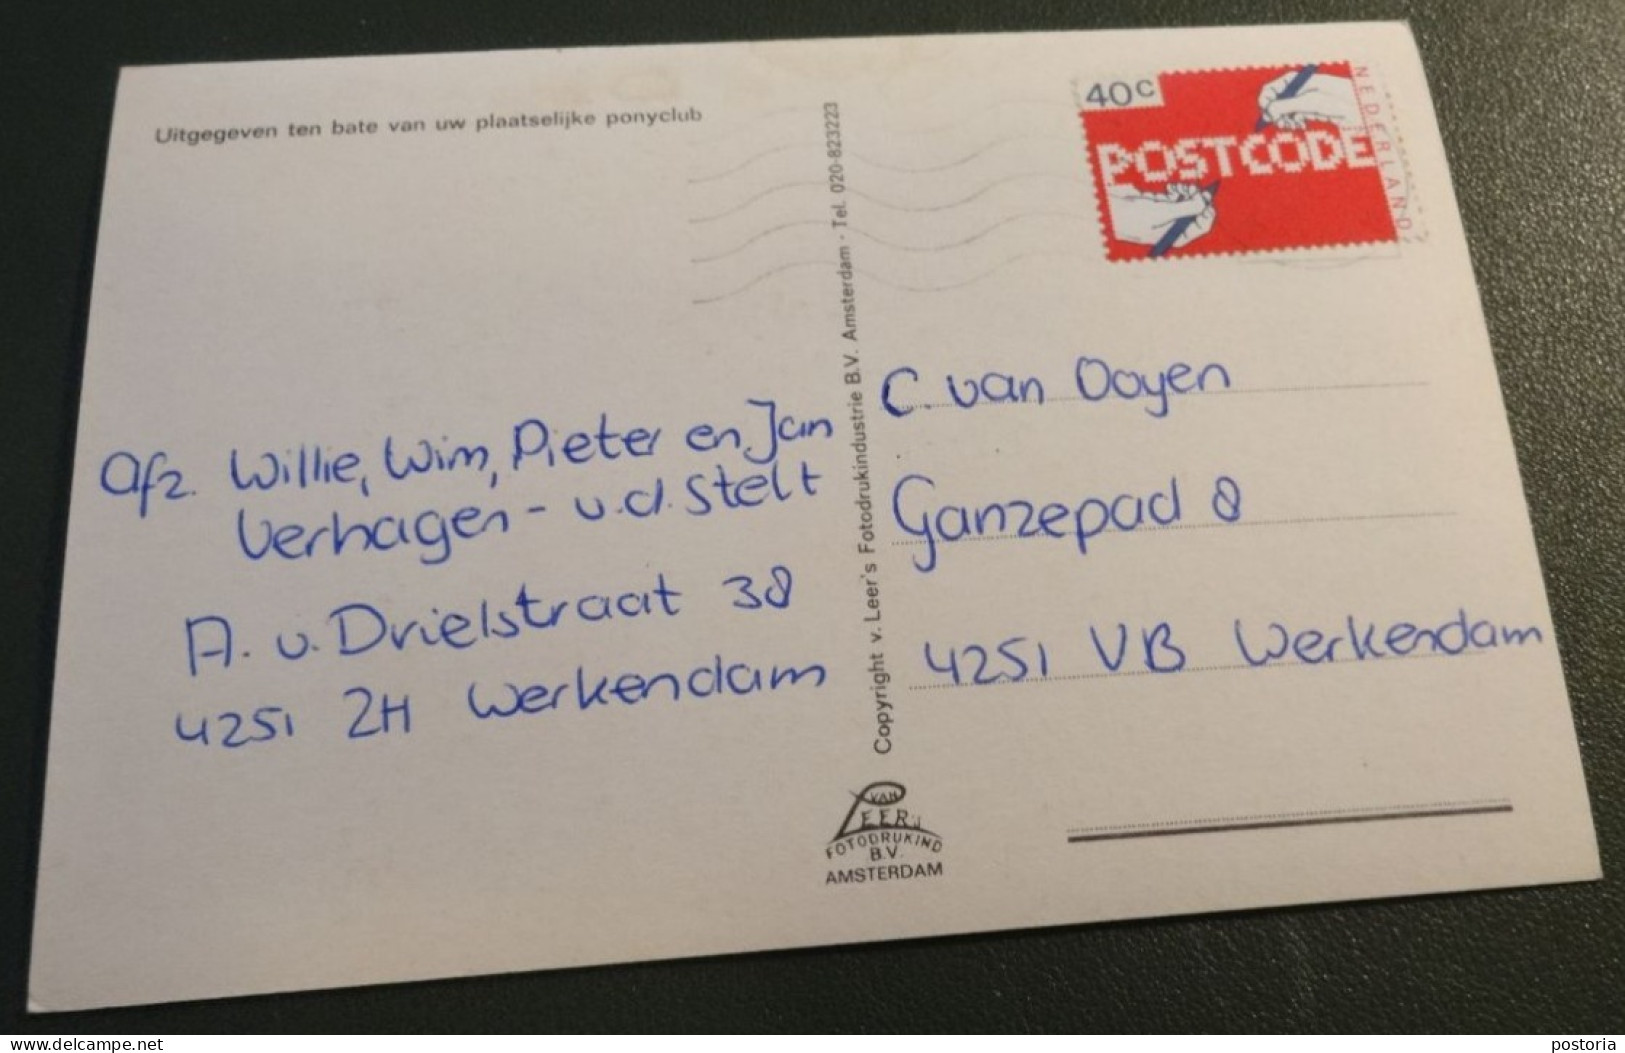 Uitgegeven ten bate van uw plaatselijke ponyclub
40c
POSTCODE
NEDERLAND
Afz. Willie, Wim, Pieter en Jan
Verhagen - v.d. Stelt
A. v. Drielstraat 38
4251 ZH Werkendam
Copyright v. Leer's Fotodrukindustrie B.V. Amsterdam - Tel. 020-823223
C. van Ooyen
Ganzepad 8
4251 VB Werkendam
VAN
LEER's
FOTODRUKIND
B.V.
AMSTERDAM
www.delcampe.net
postoria